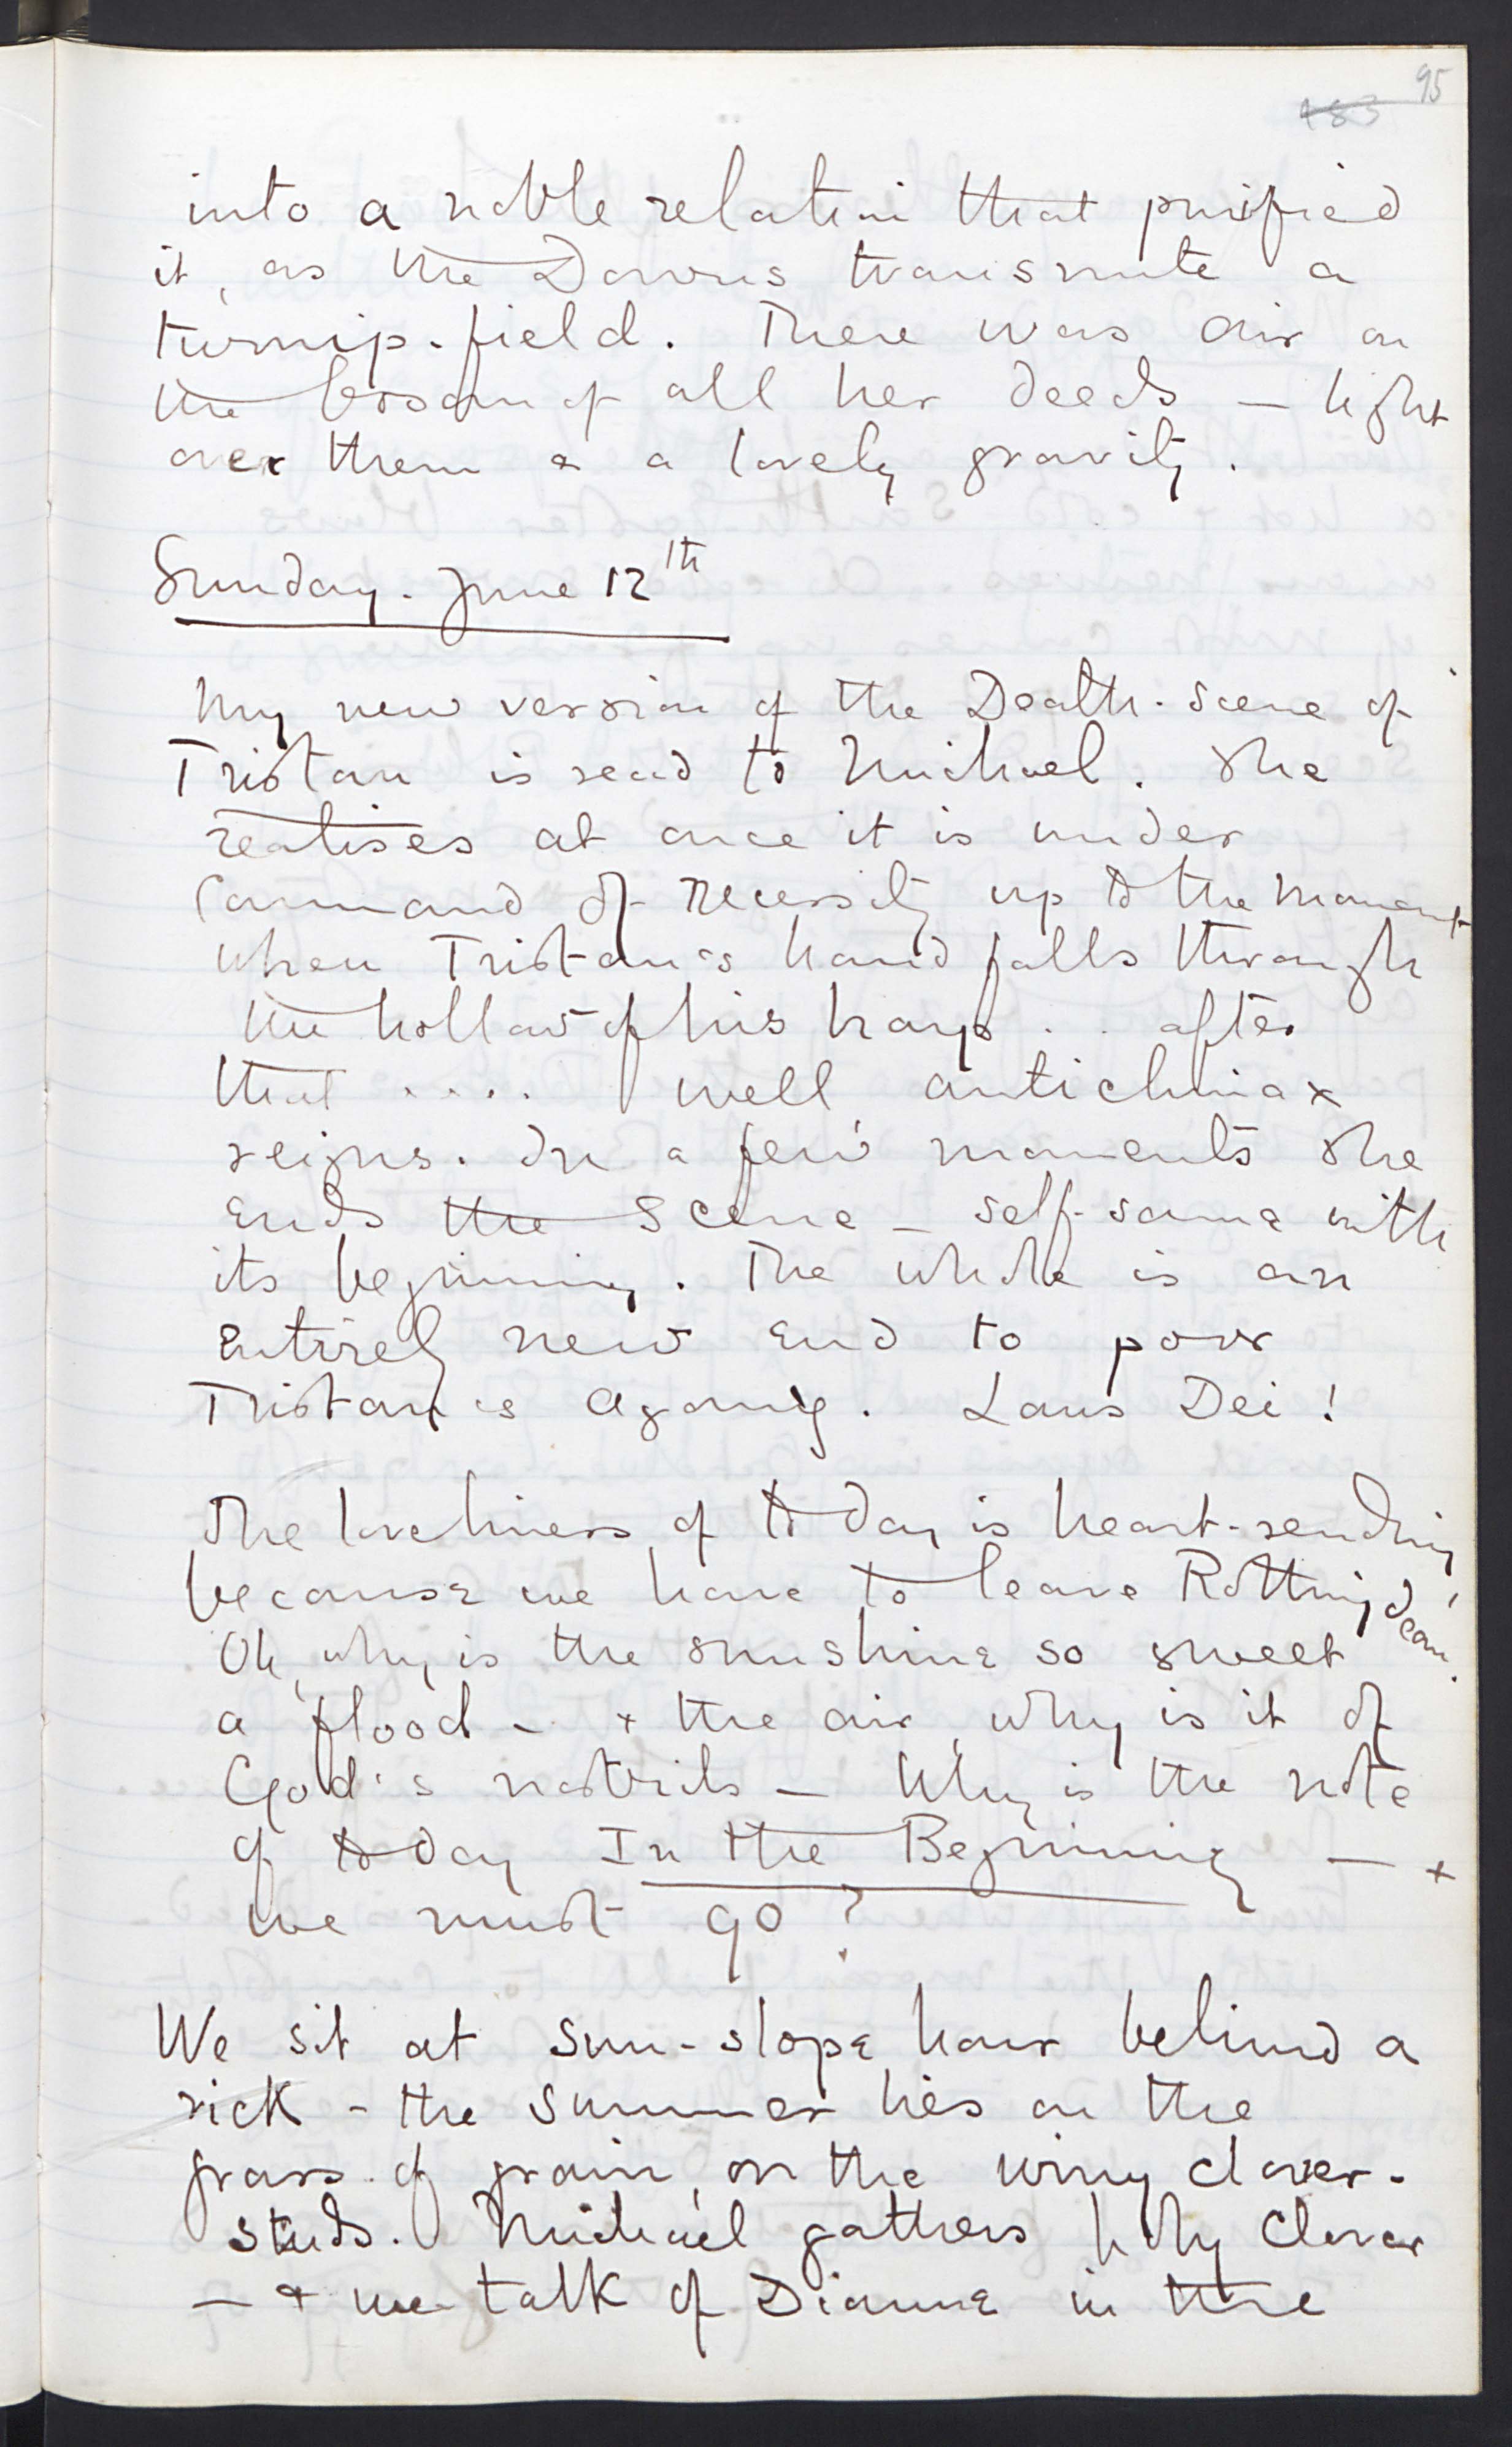 95
183
into a noble relation that purified
it, as the Downs transmute a
turnip-field. There was air on
the bosom of all her deeds — light
over them & a lovely gravity.
Sunday. June 12th
My new version of the Death-Scene of
Tristan is read to Michael. She
realises at once it is under
Command of necessity up to the moment
when Tristan's hand falls through
the hollow of his harp . . after
that . . . . well, antichmiax
reigns. In a few moments She
ends the Scene — self-same with
its beginning. The whole is an
entirely new end to poor
Tristan's agony. Laus Dei!
The loveliness of to day is heart-rending
because we have to leave Rottingdean.
Oh, why is the sunshine so sweet
a flood — & the air, why is it of
God's nostrils — Why is the note
of to day In the Beginning — &
we must go?
We sit at sun-slope hour behind a
rick - the Summer lies on the
grass of grain, on the winy clover-
studs. Michael gathers holy Clover
— & we talk of Dianna in the